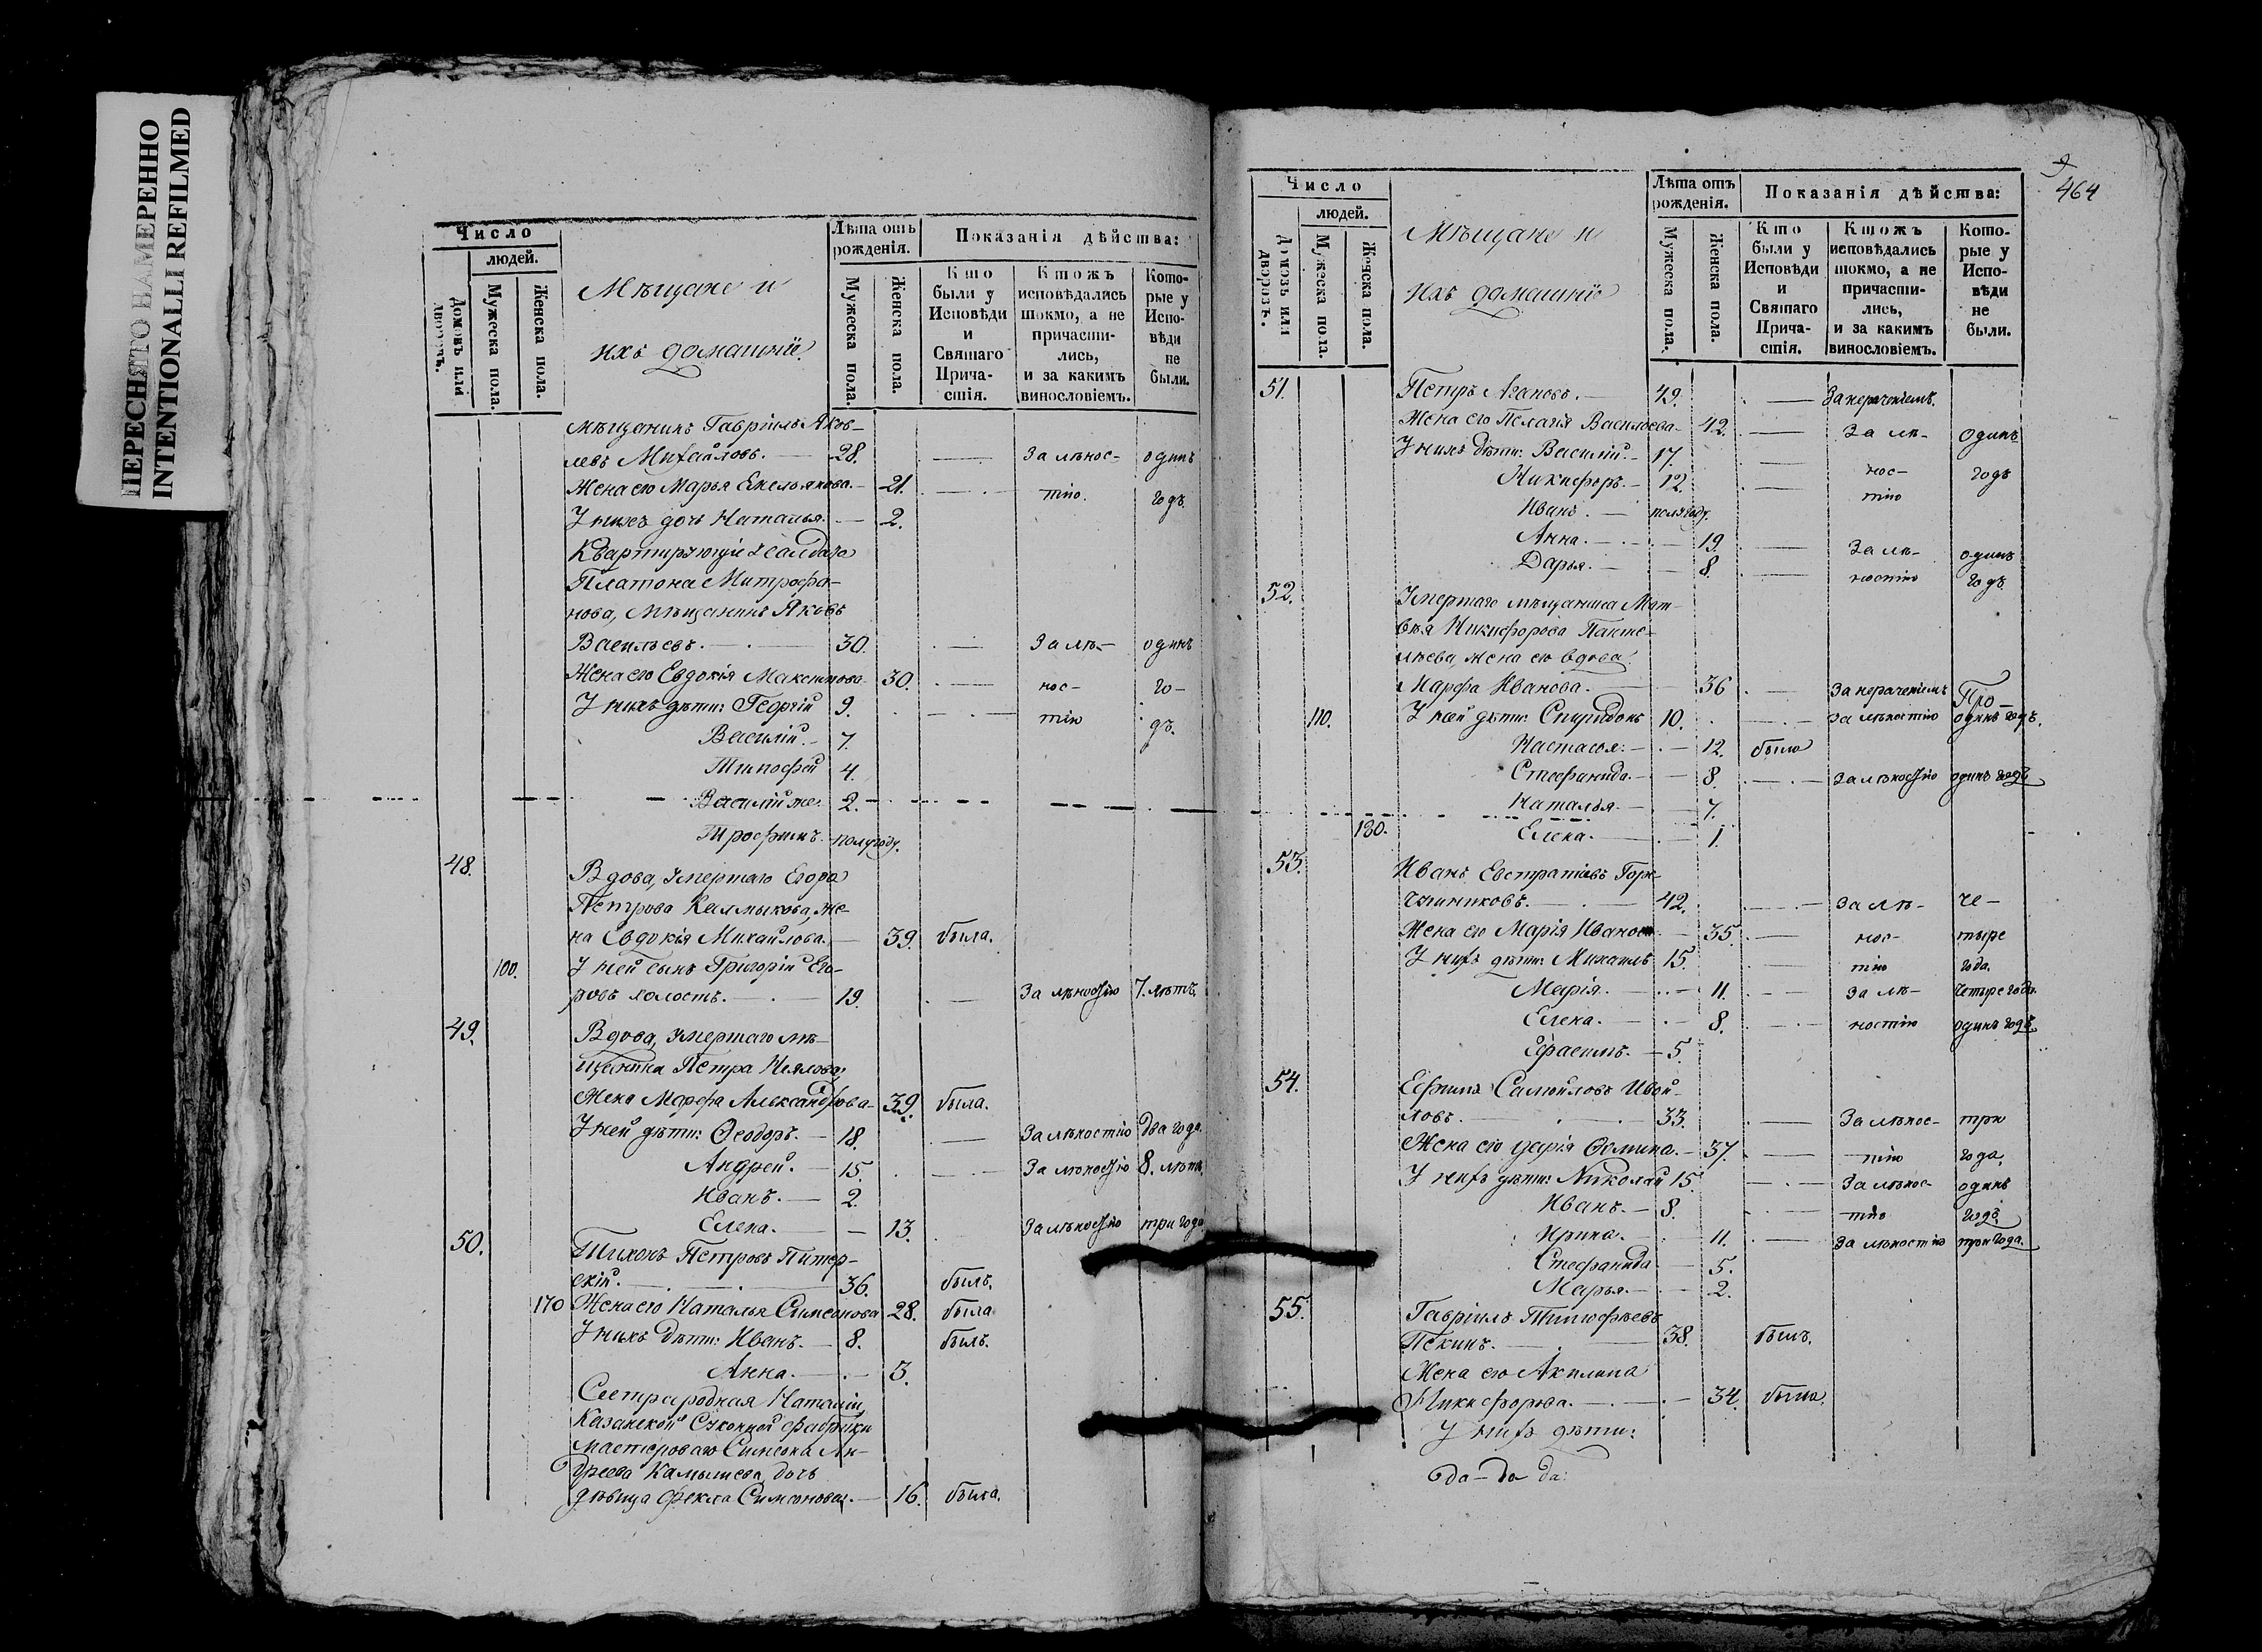 ПЕРЕСНЯТО НАМЕРЕННО
INTENTIONALLI REFILMED
Число
людей.
Домовъ или дворовъ.
Мужеска пола.
Женска пола.
Мѣщане и
ихъ домашніе.
Лѣта отъ рожденія.
Мужеска пола.
Женска пола.
Показанія дѣйства:
Кто были у Исповѣди и Святаго Причастія.
Ктожъ исповѣдались токмо, а не причастились, и за какимъ винословіемъ.
Которые у Исповѣди не были.
Мѣщанинъ Гавріилъ Яков-
левъ Михайловъ. 28. За лѣнос- одинъ
Жена его Марья Емельянова. 21. тію. годъ.
У нихъ дочь Наталья. 2.
Квартирующіе у солдата
Платона Митрофа-
нова, Мѣщанинъ Яковъ
Васильевъ. 30. За лѣ- одинъ
Жена его Евдокія Максимова 30. нос- го-
У нихъ дѣти: Георгій 9. тію дъ.
Василій. 7.
Тимофей 4.
Василій же. 2.
Трофимъ. полугоду.
48. Вдова, умершаго Егора
Петрова Калмыкова, же-
на Евдокія Михайлова. 39. была.
100. У ней сынъ Григорій Его-
ровъ холостъ. 19. За лѣностію 7. лѣтъ.
49. Вдова, умершаго мѣ-
щанина Петра Неялова,
Жена Марфа Александрова 39. была.
У ней дѣти: Ѳеодоръ. 18. За лѣностію два года.
Андрей. 15. За лѣностію 8. лѣтъ.
Иванъ. 2.
Елена. 13. За лѣностію три года
50. Тихонъ Петровъ Питер-
скій. 36. былъ.
170 Жена его Наталья Симеонова 28. была
У нихъ дѣти: Иванъ. 8. былъ.
Анна. 3.
Сестра родная Наталіи,
Казанской Суконной фабрики
мастероваго Симеона Ан-
дреева Камышева дочь
дѣвица Фекла Симеонова. 16. была.
464
Число
людей.
Домовъ или дворовъ.
Мужеска пола.
Женска пола.
Мѣщане и
ихъ домашніе
Лѣта отъ рожденія.
Мужеска пола.
Женска пола.
Показанія дѣйства:
Кто были у Исповѣди и Святаго Причастія.
Ктожъ исповѣдались токмо, а не причастились, и за какимъ винословіемъ.
Которые у Исповѣди не были.
51. Петръ Агаповъ. 49. За нераченіемъ.
Жена его Пелагія Васильева 42. За лѣ- одинъ
У нихъ дѣти: Василій. 17. нос- годъ
Никифоръ. 12. тію
Иванъ. полугоду.
Анна. 19. За лѣ- одинъ
Дарья. 8. ностію годъ.
52. Умершаго мѣщанина Мат-
вѣя Никифорова Панте-
лѣева, жена его вдова
Марфа Иванова. 36 За нераченіемъ
110. У ней дѣти: Спиридонъ 10. за лѣностію одинъ годъ.
Настасья. 12. была
Стефанида. 8. За лѣностію одинъ годъ
Наталья. 7.
180. Елена. 1.
53. Иванъ Евстратіевъ Гор-
чишниковъ. 42. За лѣ- че-
Жена его Марія Иванова 35. нос- тыре
У нихъ дѣти: Михаилъ 15. тію года.
Марія. 11. За лѣ- четыре года.
Елена. 8. ностію одинъ годъ.
Герасимъ. 5.
54. Ефимъ Самойловъ Ивой-
ловъ. 33. За лѣнос- три
Жена его Дарія Ѳомина. 37. тію года.
У нихъ дѣти: Николай 15. За лѣнос- одинъ
Иванъ. 8. тію годъ.
Ирина. 11. За лѣностію три года.
Стефанида 5.
Марья. 2.
55. Гавріилъ Тимофѣевъ
Пекинъ. 38. былъ.
Жена его Акилина
Никифорова. 34. была.
У нихъ дѣти: